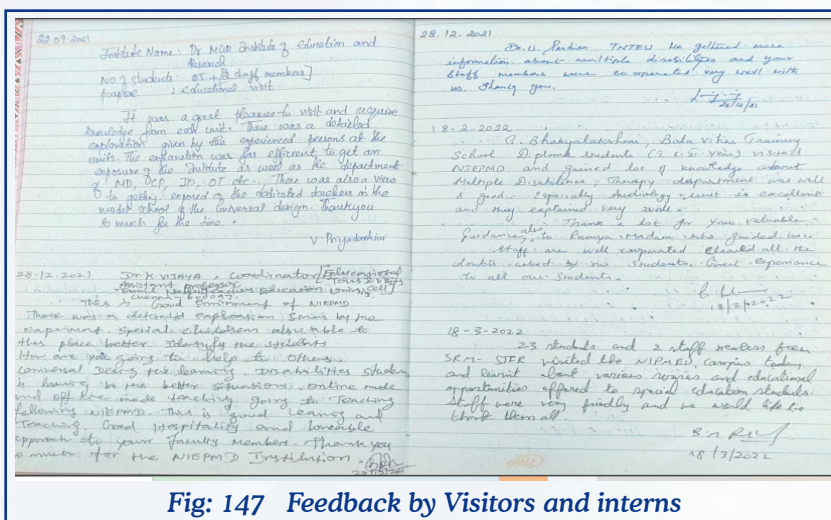 22.09.2021
Institute Name: Dr MGR Institute of education and
Research
No of students: 05 + 2 staff members]
purpose : educational visit
It was a great pleasure to visit and acquire
knowledge from each unit. There was a detailed
explanation given by the experienced persons at the
units. The explanation was far efficient to get an
exposure of the Institute as well as the department
of MD, OT etc. There was also a view
to getting exposed of the dedicated teachers in the
model school of the universal design. Thankyou
so much for the time.
V. Priyadarshini
28-12-2021 Dr. K. VIJAYA, Coordinator
Assistant professor
Education
chennai - 600097.
This is Good Environment of NIEPMD
There was a detailed explanation by the
Special children able to
this place better. Identify the students
How are you going to help to others.
learning. Disabilities student
is having in the better situations. Online mode
and off line mode teaching going to Teaching
following NIEPMD. This is good Learning and
Teaching. Good Hospitality and loveable
approach to your faculty Members. Thank you
so much for the NIEPMD Institution.
28.12.2021
TNTEU more
information about multiple disabilities and your
staff members were co-operated very well with
us. Thank you.
28/12/21
18-2-2022
Bhagyalakshmi, Bala Vihar Training
School Diploma students visited
NIEPMD and gained lot of knowledge about
Multiple Disabilities, Therapy department was well
& good. specially Audiology unit is excellent
and they explained very well.
Thank a lot for your valuable
Guidance, also to Ramya Madam who guided us.
Staff are well cooperated cleared all the
doubts asked by the students. Great experience
to all our students.
18/2/2022
18-3-2022
23 students and 2 staff members from
SRM- visited the campus today
and learnt about various services and educational
opportunities offered to special education students.
Staff were very friendly and we would like to
thank them all.
18/3/2022
Fig: 147 Feedback by Visitors and interns